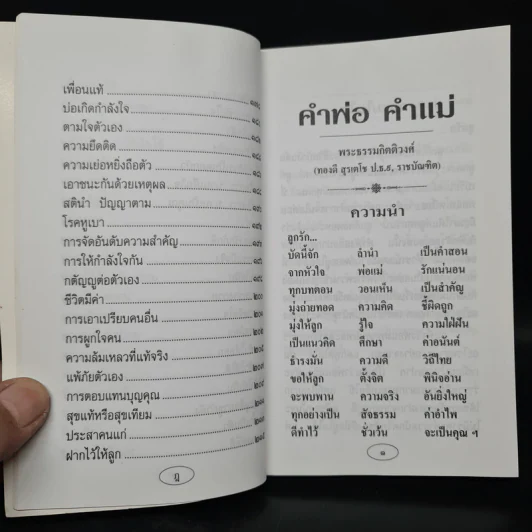 เพื่อนแท้
บ่อเกิดกำลังใจ
ตามใจตัวเอง
ความยึดติด
ความเย่อหยิ่งถือตัว
เอาชนะกันด้วยเหตุผล
สตินำ ปัญญาตาม
โรคหูเบา
การจัดอันดับความสำคัญ
การให้กำลังใจกัน
กตัญญูต่อตัวเอง
ชีวิตมีค่า
การเอาเปรียบคนอื่น
การผูกใจคน
ความล้มเหลวที่แท้จริง
แพ้ภัยตัวเอง
การตอบแทนบุญคุณ
สุขแท้หรือสุขเทียม
ประสาคนแก่
ฝากไว้ให้ลูก
ฎ
คำพ่อ คำแม่
พระธรรมกิตติวงศ์
(ทองดี สุรเตโช ป.ธ.๙, ราชบัณฑิต)
ความนำ
ลูกรัก...
บัดนี้จัก ลำนำ เป็นคำสอน
จากหัวใจ พ่อแม่ รักแน่นอน
ทุกบทตอน วอนเห็น เป็นสำคัญ
มุ่งถ่ายทอด ความคิด ชี้ผิดถูก
มุ่งให้ลูก รู้ใจ ความใฝ่ฝัน
เป็นแนวคิด ศึกษา ค่าอนันต์
ธำรงมั่น ความดี วิถีไทย
ขอให้ลูก ตั้งจิต พินิจอ่าน
จะพบพาน ความจริง อันยิ่งใหญ่
ทุกอย่างเป็น สัจธรรม ค่าอำไพ
ดีทำไว้ ชั่วเว้น จะเป็นคุณ ฯ
๑